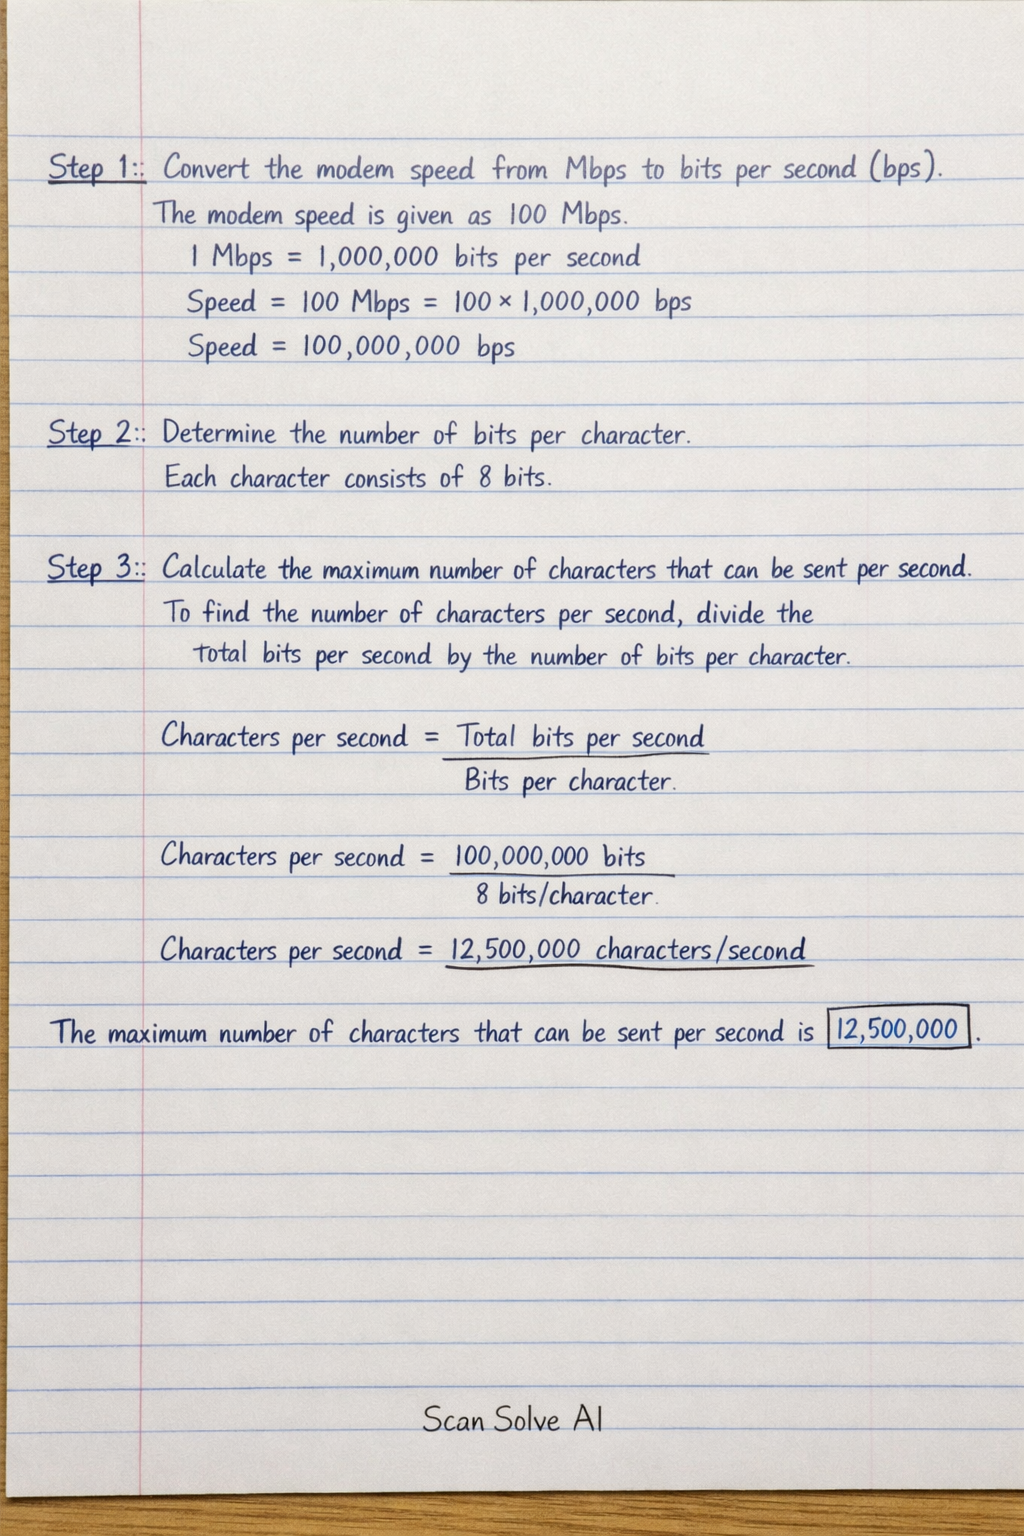 Step 1:: Convert the modem speed from Mbps to bits per second (bps).
The modem speed is given as 100 Mbps.
1 Mbps = 1,000,000 bits per second
Speed = 100 Mbps = 100 × 1,000,000 bps
Speed = 100,000,000 bps
Step 2:: Determine the number of bits per character.
Each character consists of 8 bits.
Step 3:: Calculate the maximum number of characters that can be sent per second.
To find the number of characters per second, divide the
total bits per second by the number of bits per character.
Characters per second = Total bits per second
Bits per character.
Characters per second = 100,000,000 bits
8 bits/character.
Characters per second = 12,500,000 characters/second
The maximum number of characters that can be sent per second is 12,500,000.
Scan Solve AI